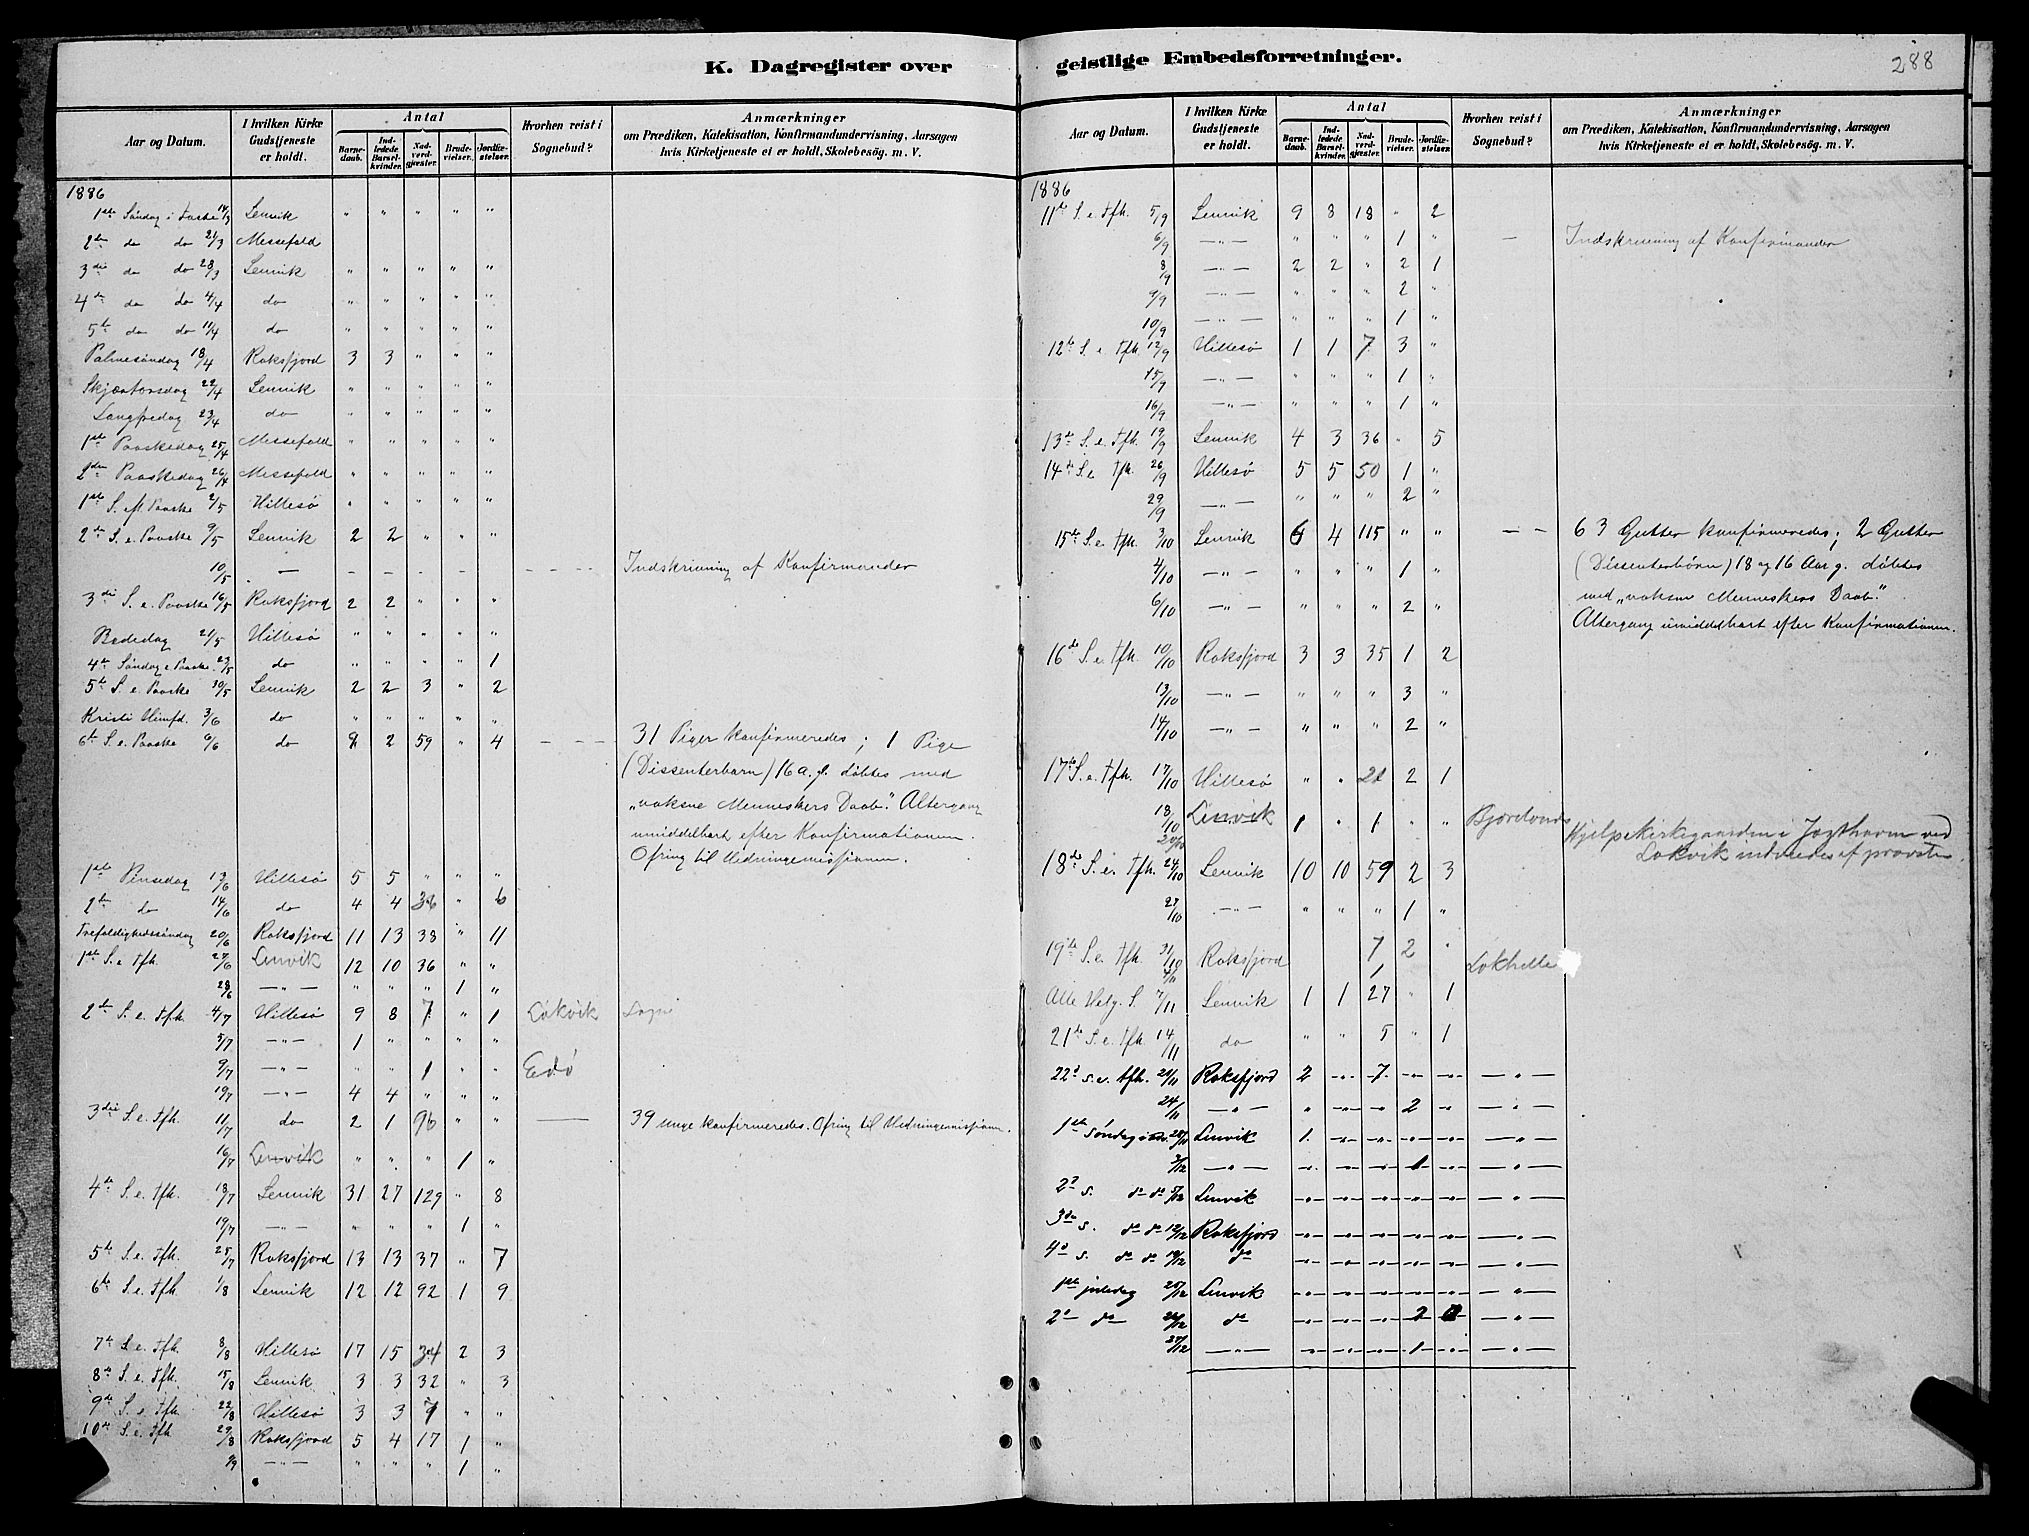 K. Dagregister over geistlige Embedsforretninger.
288
Aar og Datum. | I hvilken Kirke Gudstjeneste er holdt. | Antal | Barnedaab. | Indledede Barselkvinder. | Nadverdgjester. | Brudevielser. | Jordfæstelser. | Hvorhen reist i Sognebud? | Anmærkninger om Prædiken, Katekisation, Konfirmandundervisning, Aarsagen hvis Kirketjeneste ei er holdt, Skolebesög. m. V.
1886
1ste Søndag i Faste 14/3 Lenvik " " " " "
2den do do 21/3 Messefald
3die do do 28/3 Lenvik " " " " "
4de do do 4/4 do " " " " "
5te do do 11/4 do " " " " "
Palmesøndag 18/4 Roksfjord 3 3 " " "
Skjærtorsdag 22/4 Lenvik " " " " "
Langfredag 23/4 do " " " " "
1ste Paaskedag 25/4 Messefald " " " " "
2den Paaskedag 26/4 Messefald " " " " "
1ste S. eft. Paaske 2/5 Hillesø " " " " "
2den S. e. Paaske 9/5 Lenvik 2 2 " " "
10/5 — – – – – – – – – – Indskrivning af Konfirmander
3die S. e. Paaske 16/5 Roksfjord 2 2 " " "
Bededag 21/5 Hillesø " " " " "
4de Søndag e. Paaske 23/5 do " " " " 1
5te S. e. Paaske 30/5 Lenvik 2 2 3 " 2
Kristi Himfd. 3/6 do " " " " "
6te S. e. Paaske 6/6 do 2 2 59 " 4 – – – 31 Piger konfirmeredes; 1 Pige
(Dissenterbarn) 16 a. gl. døbtes med
"voksne Menneskers Daab". Altergang
umiddelbart efter Konfirmationen.
Ofring til Hedningemissionen.
1ste Pinsedag 13/6 Hillesø 5 5 " " "
2den do 14/6 do 4 4 36 " 6
Trefoldighedssøndag 20/6 Roksfjord 11 13 38 " 11
1ste S. e Tfh. 27/6 Lenvik 12 10 36 " "
28/6 — " — " " " 1 "
2den S. e. Tfh. 4/7 Hillesø 9 8 7 " 1 Lökvik
5/7 — " — 1 " " " "
9/7 — " — " " 1 " " Edø
10/7 — " — 4 4 " " "
3die S. e. Tfh. 11/7 do 2 1 96 " " — 39 unge konfirmeredes. Ofring til Hedningemissionen.
16/7 Lenvik " " " 1 "
4de S. e. Tfh. 18/7 Lenvik 31 27 129 " 8
19/7 — " — " " " 1 "
5te S. e. Tfh. 25/7 Roksfjord 13 13 37 " 7
6te S. e. Tfh 1/8 Lenvik 12 12 92 1 9
7de S. e. Tfh. 8/8 Hillesø 17 15 34 2 3
8de S. e. Tfh. 15/8 Lenvik 3 3 32 " 3
9de S. e Tfh. 22/8 Hillesø 3 3 7 " "
10de S. e. Tfh 29/8 Roksfjord 5 4 17 1 "
2/9 — " — " " " 1 "
Aar og Datum. | I hvilken Kirke Gudstjeneste er holdt. | Antal | Barnedaab. | Indledede Barselkvinder. | Nadverdgjester. | Brudevielser. | Jordfæstelser. | Hvorhen reist i Sognebud? | Anmærkninger om Prædiken, Katekisation, Konfirmandundervisning, Aarsagen hvis Kirketjeneste ei er holdt, Skolebesög. m. V.
1886
11te S. e. Tfh. 5/9 Lenvik 9 8 18 " 2
6/9 — " — " " " 1 " — Indskrivning af Konfirmander
8/9 — " — 2 2 " 2 1
9/9 — " — " " " 2 "
10/9 — " — " " " 1 "
12te S. e. Tfh. 12/9 Hillesø 1 1 7 3 "
15/9 — " — " " " 1 "
16/9 — " — " " " 1 "
13de S. e. Tfh. 19/9 Lenvik 4 3 36 " 5
14de S. e Tfh. 26/9 Hillesø 5 5 50 1 "
29/9 — " — " " " 2 "
15de S. e. Tfh. 3/10 Lenvik 6 4 115 " " — 63 Gutter konfirmeredes; 2 Gutter
4/10 — " — " " " 1 " (Dissenterbørn) 18 og 16 Aar g. døbtes
6/10 — " — " " " 2 " med "voksne Menneskers Daab".
Altergang umiddelbart efter Konfirmationen.
16de S. e. Tfh. 10/10 Roksfjord 3 3 35 1 2
13/10 — " — " " " 3 "
14/10 — " — " " " 2 "
17de S. e. Tfh. 17/10 Hillesø " " 21 2 1
18/10 Lenvik 1 " 1 " "
20/10 Hjelpekirkegaarden i Jøgthavn ved
Lökvik indviedes af provsten.
18de S. e. Tfh. 24/10 Lenvik 10 10 59 2 3
27/10 — " — " " " 1 "
19de S. e. Tfh 31/10 Roksfjord 7 2 "
4/11 1
Alle Helg. S. 7/11 Lenvik 1 1 27 " 1
21de S. e. Tfh. 14/11 do " " 5 " 1
22d s. e. tfh. 21/11 Roksfjord 2 -"- 7 -"- -"- — " —
24/11 — " — " -"- -"- 2 " — " —
1ste Søndag i Adv. 28/11 Lenvik 1 -"- -"- -"- -"- — " —
3/12 — " — -"- -"- -"- 1 -"- — " —
2d s. do do 5/12 Lenvik -"- -"- -"- -"- -"- — " —
3de s. do do 12/12 Roksfjord -"- -"- -"- -"- -"- — " —
4d s. do do 19/12 do -"- -"- -"- -"- -"- — " —
1ste juledag 25/12 Lenvik -"- -"- -"- -"- -"- — " —
2d do 26/12 do -"- -"- -"- 2 — " —
27/12 — " — -"- -"- -"- 1 -"- — " —